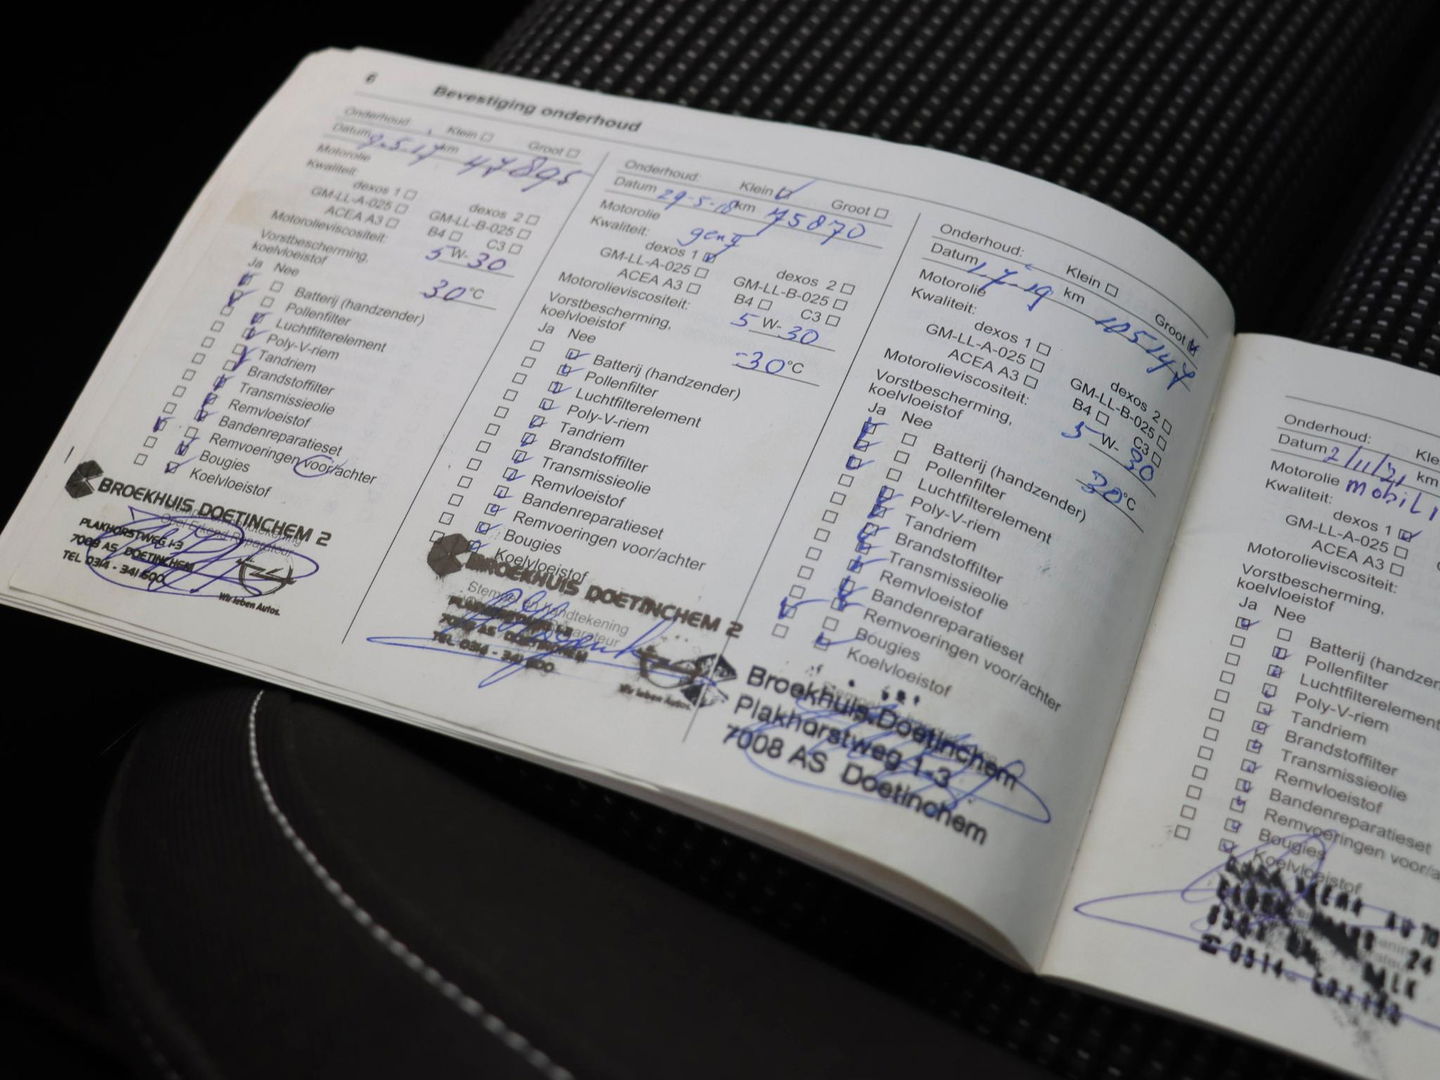 6
Bevestiging onderhoud
Onderhoud: Klein Groot
Datum 9-5-17 km 47895
Motorolie
Kwaliteit:
dexos 1 dexos 2
GM-LL-A-025 GM-LL-B-025
ACEA A3 B4 C3
Motorolieviscositeit: 5 W- 30
Vorstbescherming,
koelvloeistof 30 °C
Ja Nee
Batterij (handzender)
Pollenfilter
Luchtfilterelement
Poly-V-riem
Tandriem
Brandstoffilter
Transmissieolie
Remvloeistof
Bandenreparatieset
Remvoeringen voor/achter
Bougies
Koelvloeistof
BROEKHUIS DOETINCHEM 2
PLAKHORSTWEG 1-3
7008 AS DOETINCHEM
TEL. 0314 - 341 600
Wir leben Autos.
Onderhoud: Klein Groot
Datum 29-5-18 km 75870
Motorolie
Kwaliteit: gen II
dexos 1 dexos 2
GM-LL-A-025 GM-LL-B-025
ACEA A3 B4 C3
Motorolieviscositeit: 5 W- 30
Vorstbescherming,
koelvloeistof -30 °C
Ja Nee
Batterij (handzender)
Pollenfilter
Luchtfilterelement
Poly-V-riem
Tandriem
Brandstoffilter
Transmissieolie
Remvloeistof
Bandenreparatieset
Remvoeringen voor/achter
Bougies
Koelvloeistof
BROEKHUIS DOETINCHEM 2
7008 AS DOETINCHEM
TEL. 0314 - 341 600
Wir leben Autos.
Onderhoud: Klein Groot
Datum 1-7-19 km 105147
Motorolie
Kwaliteit:
dexos 1 dexos 2
GM-LL-A-025 GM-LL-B-025
ACEA A3 B4 C3
Motorolieviscositeit: 5 W- 30
Vorstbescherming,
koelvloeistof 30 °C
Ja Nee
Batterij (handzender)
Pollenfilter
Luchtfilterelement
Poly-V-riem
Tandriem
Brandstoffilter
Transmissieolie
Remvloeistof
Bandenreparatieset
Remvoeringen voor/achter
Bougies
Koelvloeistof
Broekhuis Doetinchem
Plakhorstweg 1-3
7008 AS Doetinchem
Onderhoud: Kle
Datum 2/11/21 km
Motorolie mobil 1
Kwaliteit:
dexos 1
GM-LL-A-025
ACEA A3
Motorolieviscositeit:
Vorstbescherming,
koelvloeistof
Ja Nee
Batterij (handzen
Pollenfilter
Luchtfilterelement
Poly-V-riem
Tandriem
Brandstoffilter
Transmissieolie
Remvloeistof
Bandenreparatieset
Remvoeringen voor/a
Bougies
Koelvloeistof